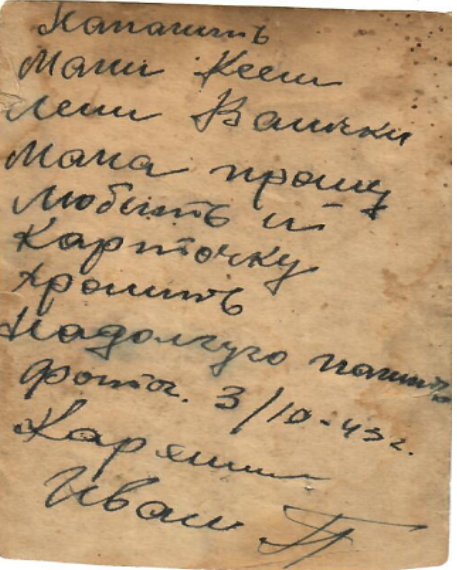 Напамить
Мани Кеши
Лени Ванички
Мана прошу
Любить и
Карточку
хронить
Надолгую памить
фотог. 3/10-43г.
Каряшин
Иван П